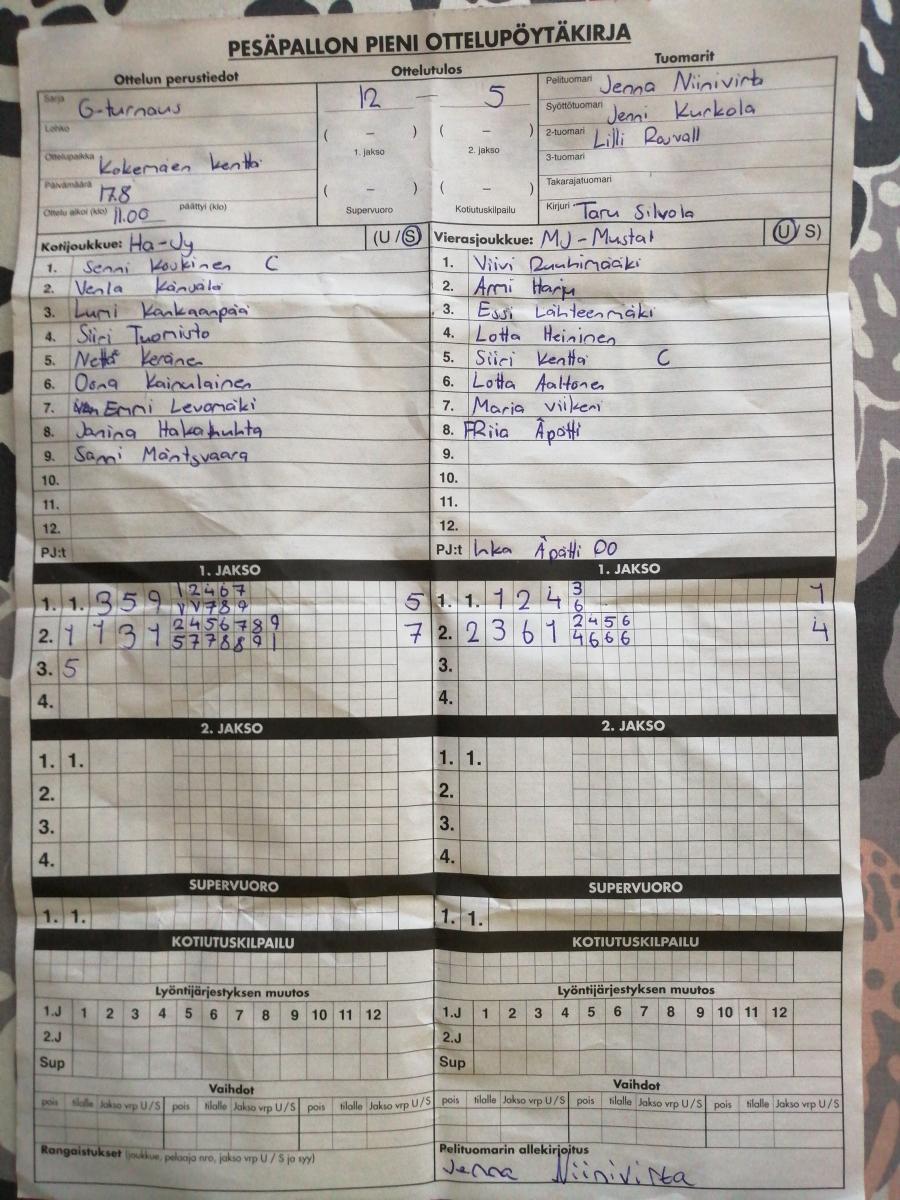 PESÄPALLON PIENI OTTELUPÖYTÄKIRJA
Ottelun perustiedot
Ottelutulos
Tuomarit
Sarja G-turnaus
Lohko
Ottelupaikka Kokemäen kenttä
Päivämäärä 17.8
Ottelu alkoi (klo) 11.00 päättyi (klo)
12 – 5
( – ) ( – )
1. jakso 2. jakso
( – ) ( – )
Supervuoro Kotiutuskilpailu
Pelituomari Jenna Niinivirta
Syöttötuomari Jenni Kurkola
2-tuomari Lilli Rouvall
3-tuomari
Takarajatuomari
Kirjuri Taru Silvola
Kotijoukkue: Ha-Jy (U/S)
1. Senni Koukinen C
2. Venla
3. Lumi Kankaanpää
4. Siiri Tuomisto
5. Netta Keränen
6. Oona Kainulainen
7. Emmi Levomäki
8. Janina Hakahuhta
9. Sanni Mäntsvaara
10.
11.
12.
PJ:t
Vierasjoukkue: MJ-Mustat (U/S)
1. Viivi Ruuhimääki
2. Anni Harju
3. Essi Lähteenmäki
4. Lotta Heininen
5. Siiri Kenttä C
6. Lotta Aaltonen
7. Marja Viikeri
8. Riia Äpätti
9.
10.
11.
12.
PJ:t Inka Äpätti 00
1. JAKSO
1. 1. 3 5 9 1 2 4 6 7 5
V V 7 8 9
2. 1 1 3 1 2 4 5 6 7 8 9 7
5 7 7 8 8 9 1
3. 5
4.
1. JAKSO
1. 1. 1 2 4 3 1
6
2. 2 3 6 1 2 4 5 6 4
4 6 6 6
3.
4.
2. JAKSO
1. 1.
2.
3.
4.
2. JAKSO
1. 1.
2.
3.
4.
SUPERVUORO
1. 1.
SUPERVUORO
1. 1.
KOTIUTUSKILPAILU
KOTIUTUSKILPAILU
Lyöntijärjestyksen muutos
1.J 1 2 3 4 5 6 7 8 9 10 11 12
2.J
Sup
Lyöntijärjestyksen muutos
1.J 1 2 3 4 5 6 7 8 9 10 11 12
2.J
Sup
Vaihdot
pois tilalle Jakso vrp U/S pois tilalle Jakso vrp U/S pois tilalle Jakso vrp U/S
Vaihdot
pois tilalle Jakso vrp U/S pois tilalle Jakso vrp U/S pois tilalle Jakso vrp U/S
Rangaistukset (joukkue, pelaaja nro, jakso vrp U / S ja syy)
Pelituomarin allekirjoitus
Jenna Niinivirta